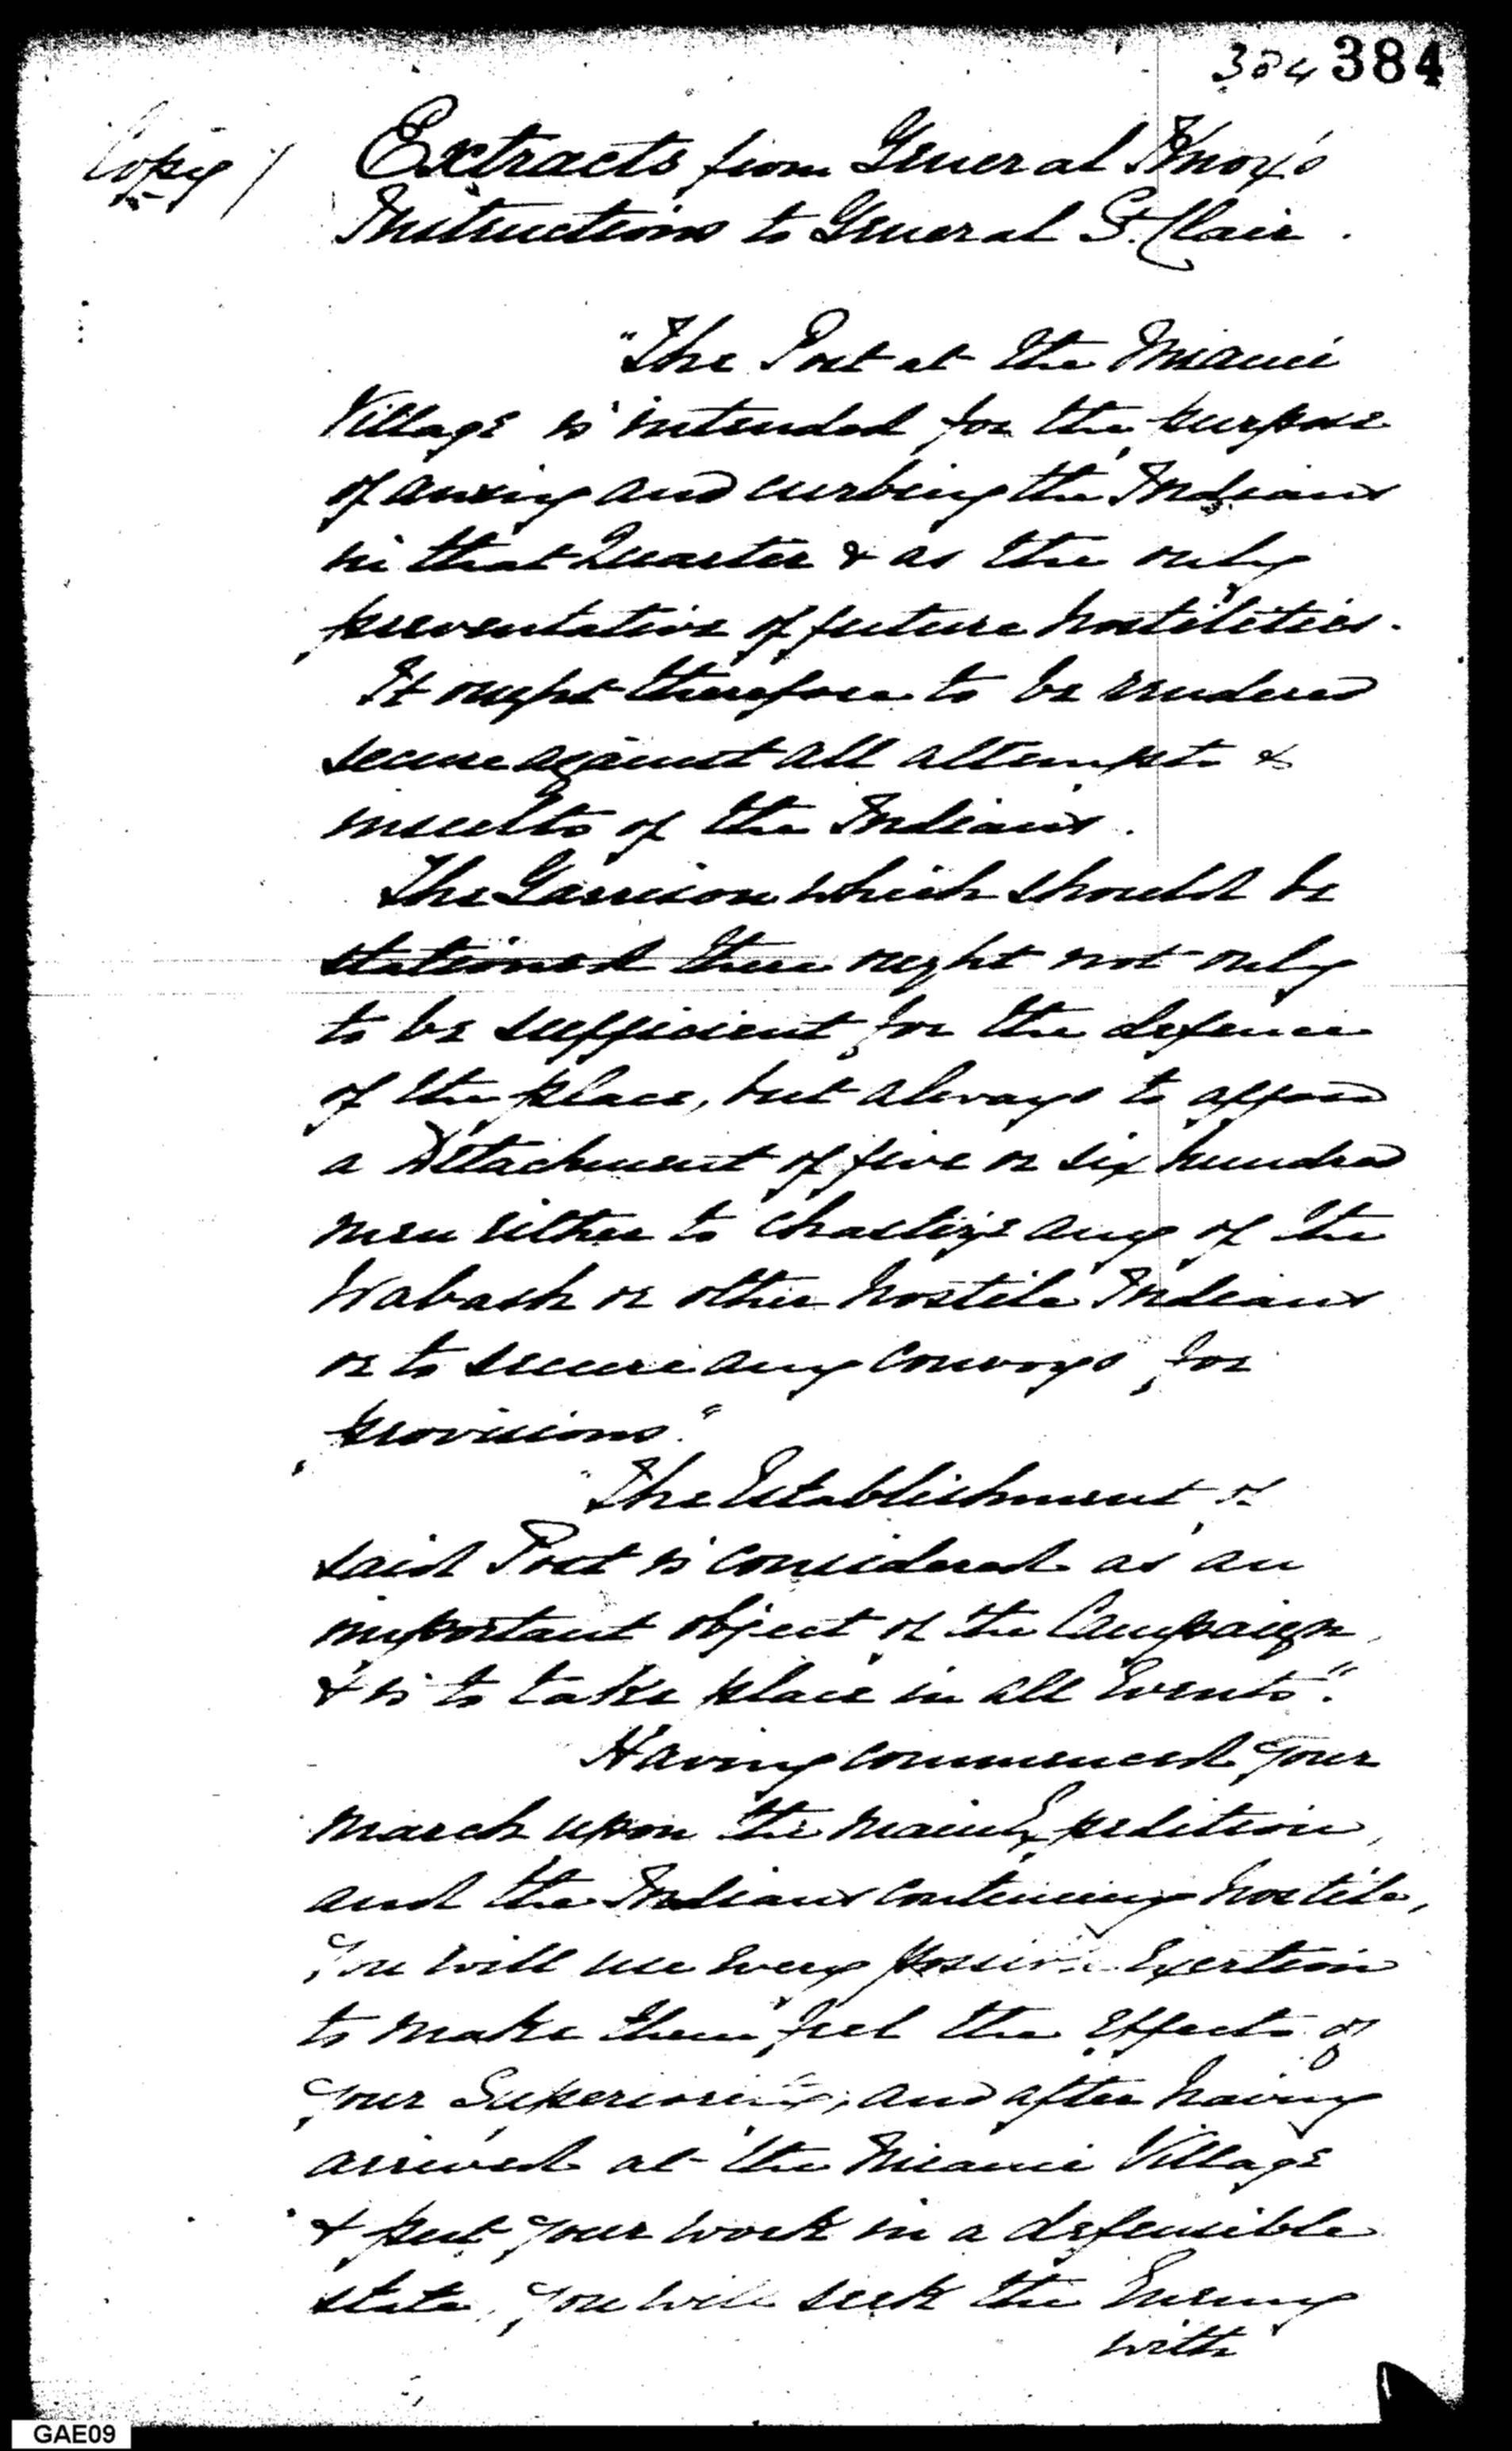 384 384
Copy / Extracts from General Knox's
Instructions to General St. Clair.
"The Post at the Miami
Village is intended for the purpose
of awing and curbing the Indians
in that Quarter & as the only
preventative of future hostilities.
It ought therefore to be rendered
secure against all attempts &
insults of the Indians.
The Garrison which should be
stationed there ought not only
to be sufficient for the defence
of the place, but always to afford
a Detachment of five or six hundred
men either to chastize any of the
Wabash or other hostile Indians
or to secure any convoys for
provisions."
"The Establishment of
said Post is considered as an
important object of the Campaign,
& is to take place in all Events".
Having commenced your
march upon the main Expedition,
and the Indians continuing hostile,
you will use every possible Exertion
to make them feel the effects of
your Superiority, and after having
arrived at the Miami Village
& put your work in a defensible
state, you will seek the Enemy
with
GAE09